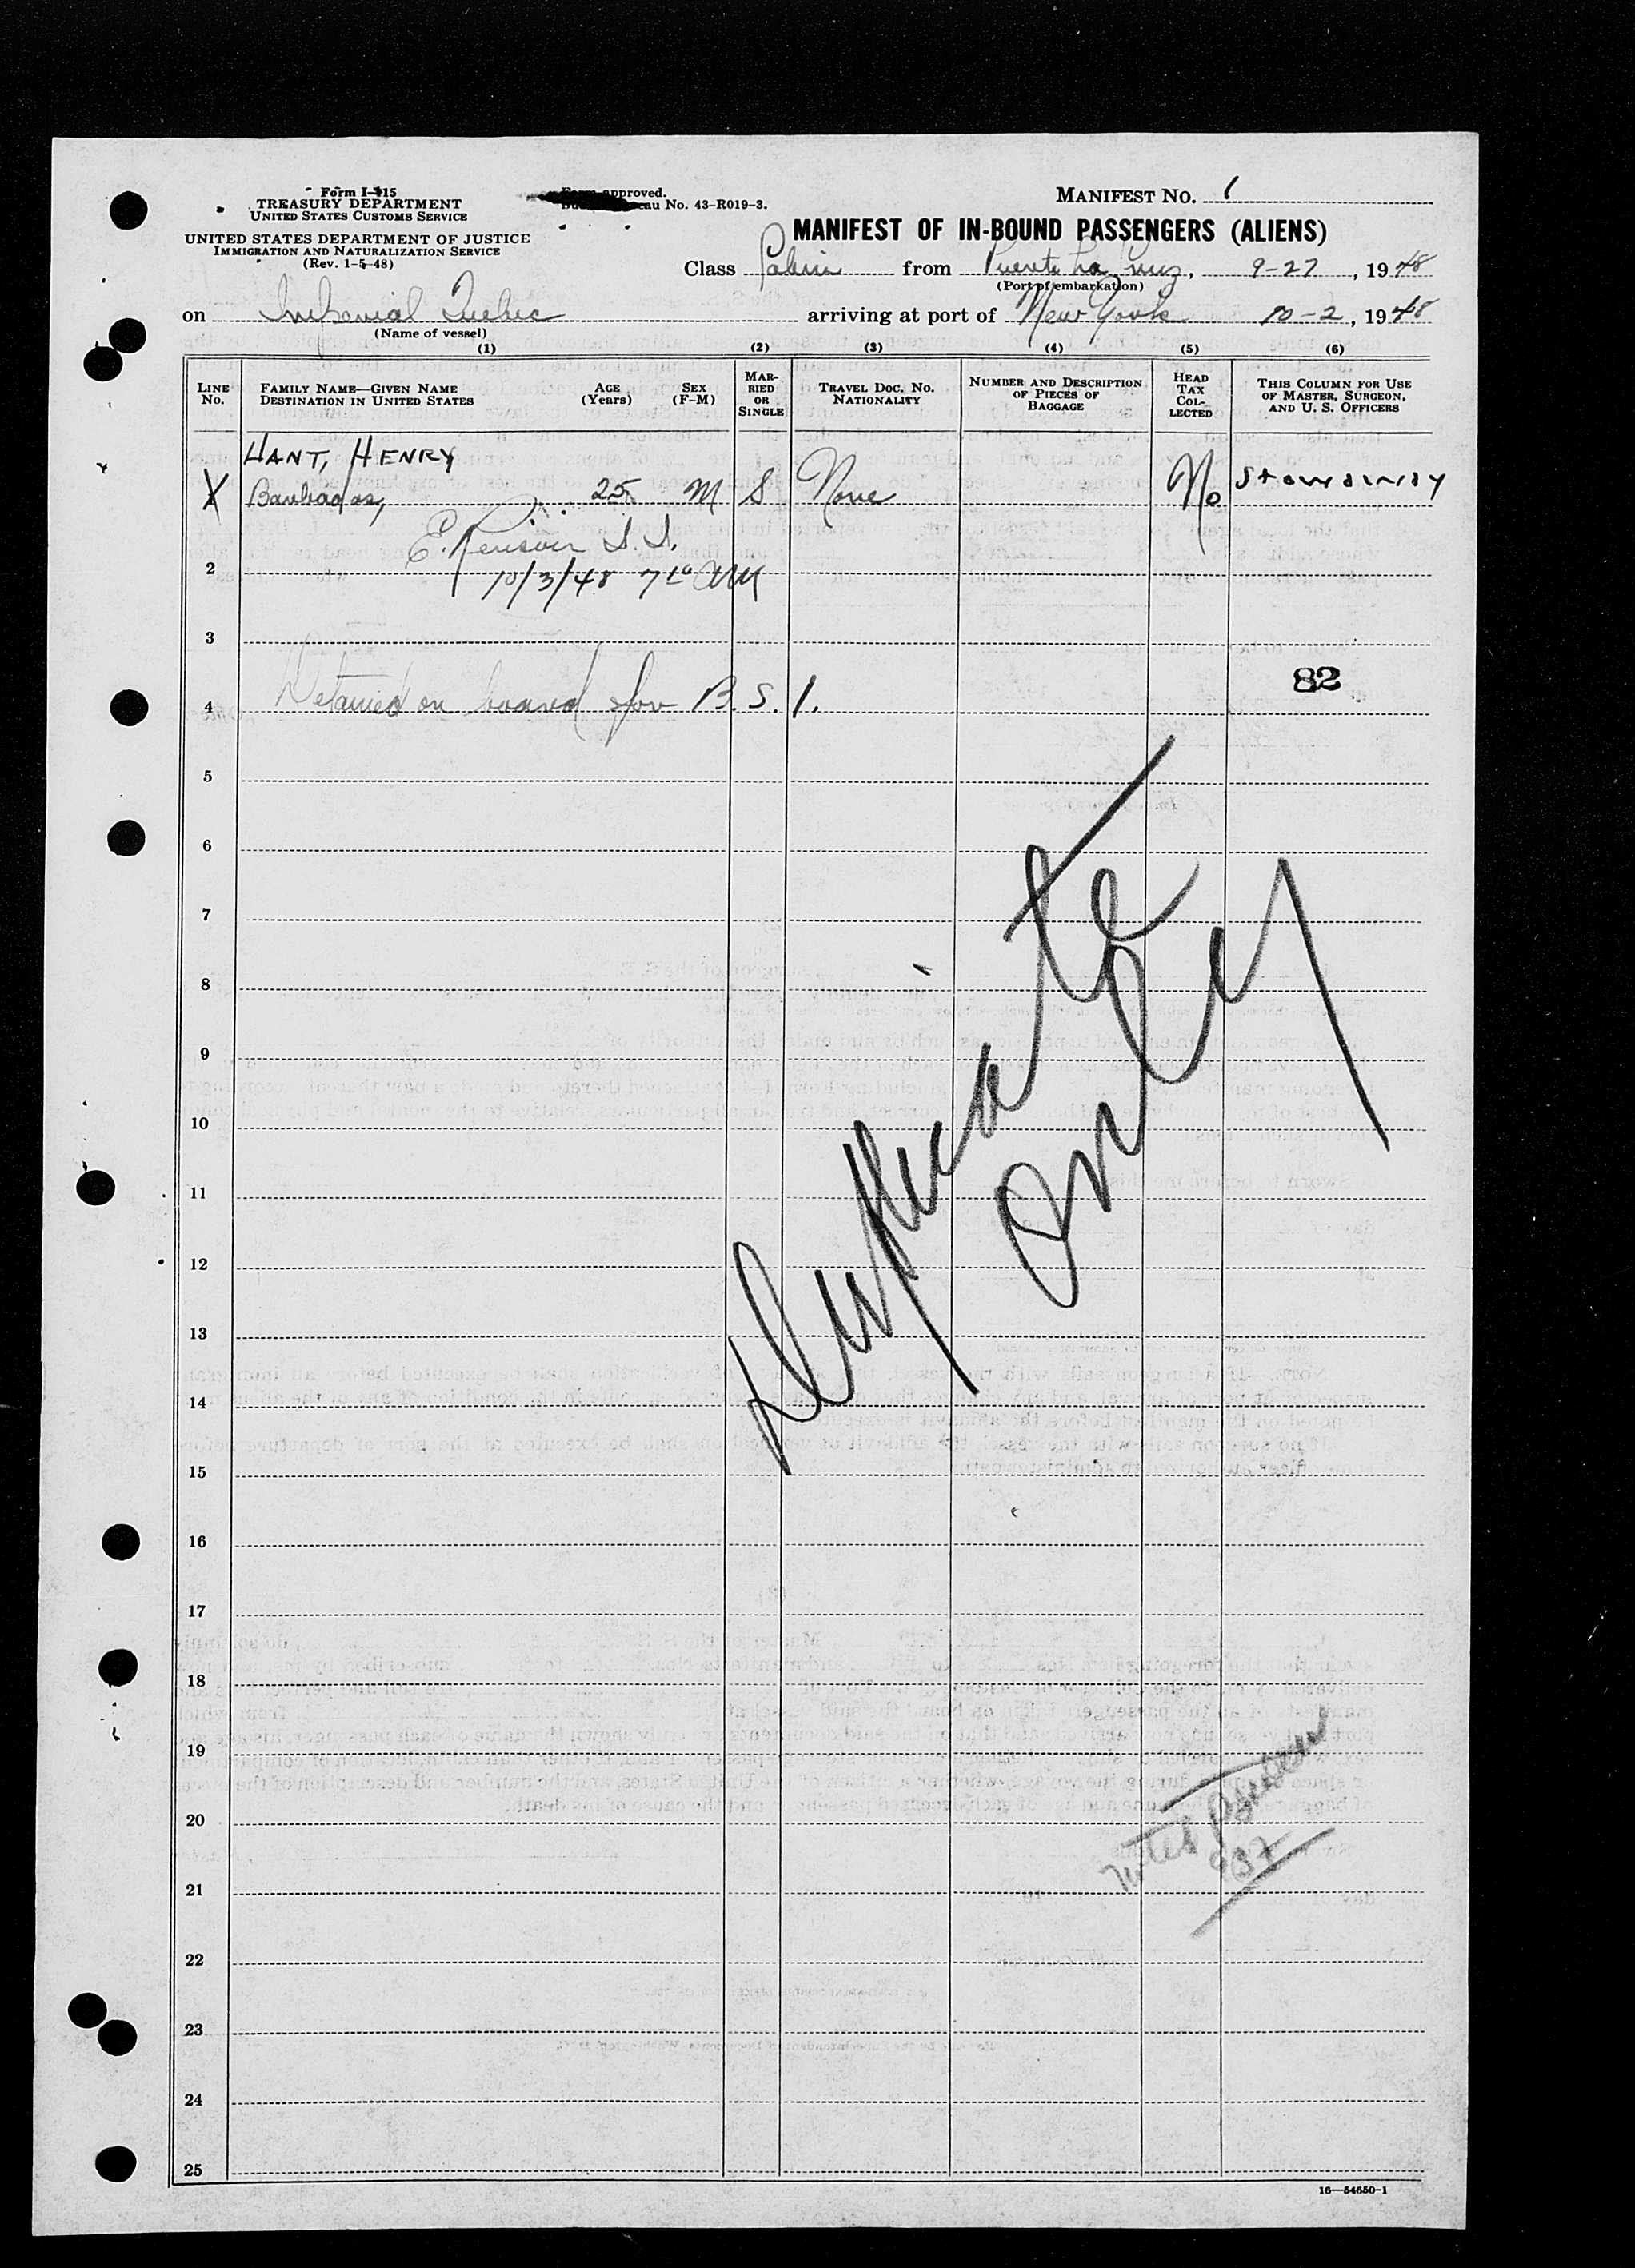 Form I-415
TREASURY DEPARTMENT
UNITED STATES CUSTOMS SERVICE
UNITED STATES DEPARTMENT OF JUSTICE
IMMIGRATION AND NATURALIZATION SERVICE
(Rev. 1-5-48)
Form approved.
No. 43-R019-3.
MANIFEST No. 1
MANIFEST OF IN-BOUND PASSENGERS (ALIENS)
Class Cabin from Puerto La Cruz, 9-27, 1948
(Port of embarkation)
on Imperial Quebec arriving at port of New York 10-2, 1948
(Name of vessel)
(1) (2) (3) (4) (5) (6)
LINE No.
FAMILY NAME—GIVEN NAME
DESTINATION IN UNITED STATES
AGE (Years)
SEX (F-M)
MARRIED OR SINGLE
TRAVEL DOC. NO. NATIONALITY
NUMBER AND DESCRIPTION OF PIECES OF BAGGAGE
HEAD TAX COLLECTED
THIS COLUMN FOR USE OF MASTER, SURGEON, AND U. S. OFFICERS
HANT, HENRY
X Barbados, 25 M S None No Stowaway
E. I. I.
2 10/3/48 7 10 AM
3
82
4 Detained on board for B. S. I.
5
6
7
8
9
10
11
12
13
14
15
16
17
18
19
20
21
22
23
24
25
Duplicate
Only
937
16—54650-1